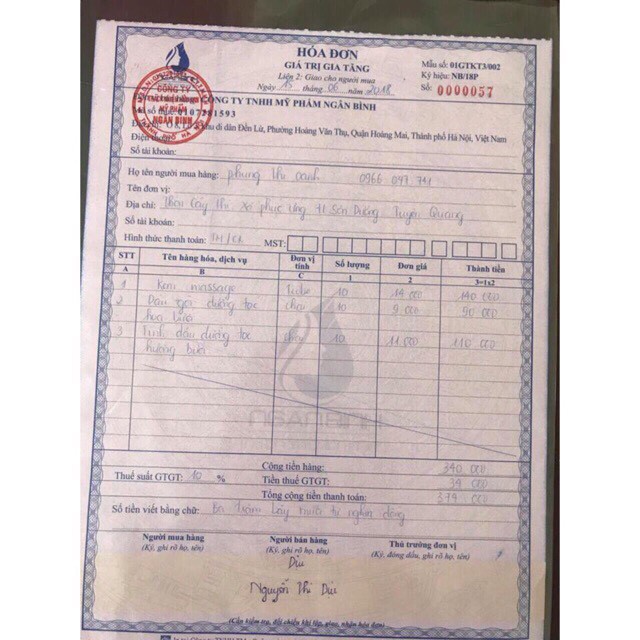 HÓA ĐƠN
GIÁ TRỊ GIA TĂNG
Liên 2: Giao cho người mua
Ngày 15 tháng 06 năm 2018
Mẫu số: 01GTKT3/002
Ký hiệu: NB/18P
Số: 0000057
CÔNG TY
MỸ PHẨM
NGÂN BÌNH
CÔNG TY TNHH MỸ PHẨM NGÂN BÌNH
Mã số thuế: 0107381593
khu di dân Đền Lừ, Phường Hoàng Văn Thụ, Quận Hoàng Mai, Thành phố Hà Nội, Việt Nam
Điện thoại:
Số tài khoản:
Họ tên người mua hàng: Phùng Thị Oanh 0966 097 741
Tên đơn vị:
Địa chỉ: Thôn Cây Thị Xã Phúc Ứng H Sơn Dương Tuyên Quang
Số tài khoản:
Hình thức thanh toán: TM/CK MST:
STT Tên hàng hóa, dịch vụ Đơn vị tính Số lượng Đơn giá Thành tiền
A B C 1 2 3=1x2
1 Kem massage Tube 10 14 000 140 000
2 Dầu gội dưỡng tóc chai 10 9 000 90 000
3 Tinh dầu dưỡng tóc 10 11 000 110 000
hương bưởi
NGANBINH
Cộng tiền hàng: 340 000
Thuế suất GTGT: 10 % Tiền thuế GTGT: 34 000
Tổng cộng tiền thanh toán: 374 000
Số tiền viết bằng chữ: Ba trăm bảy mươi tư nghìn đồng
Người mua hàng Người bán hàng Thủ trưởng đơn vị
(Ký, ghi rõ họ, tên) (Ký, ghi rõ họ, tên) (Ký, đóng dấu, ghi rõ họ, tên)
Dịu
Nguyễn Thị Dịu
(Cần kiểm tra, đối chiếu khi lập, giao, nhận hóa đơn)